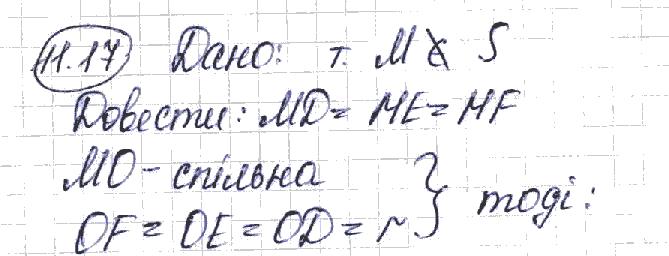 11.17 Дано: т. M ∉ S
Довести: MD = ME = MF
MO - спільна
OF = OE = OD = r } тоді: